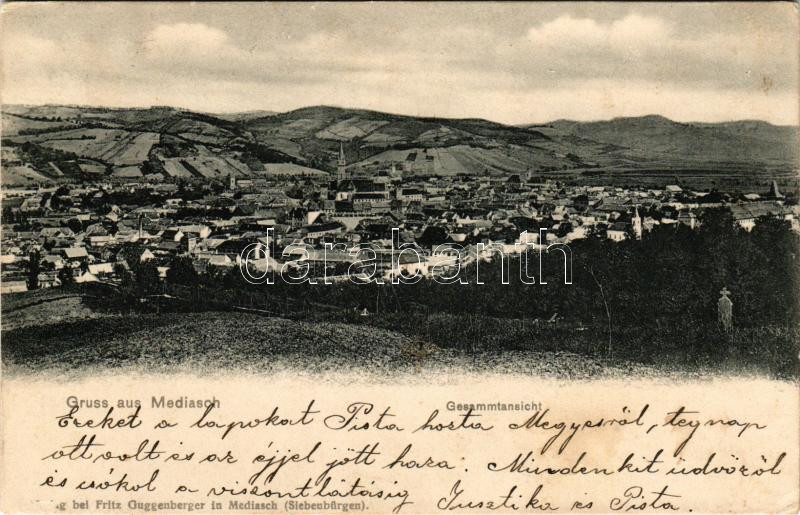 darabanth
Gruss aus Mediasch
Gesammtansicht
Ezeket a lapokat Pista hozta Megyesről, tegnap
ott volt és az éjjel jött haza. Mindenkit üdvözöl
és csókol a viszontlátásig Jusztika és Pista.
g bei Fritz Guggenberger in Mediasch (Siebenbürgen).